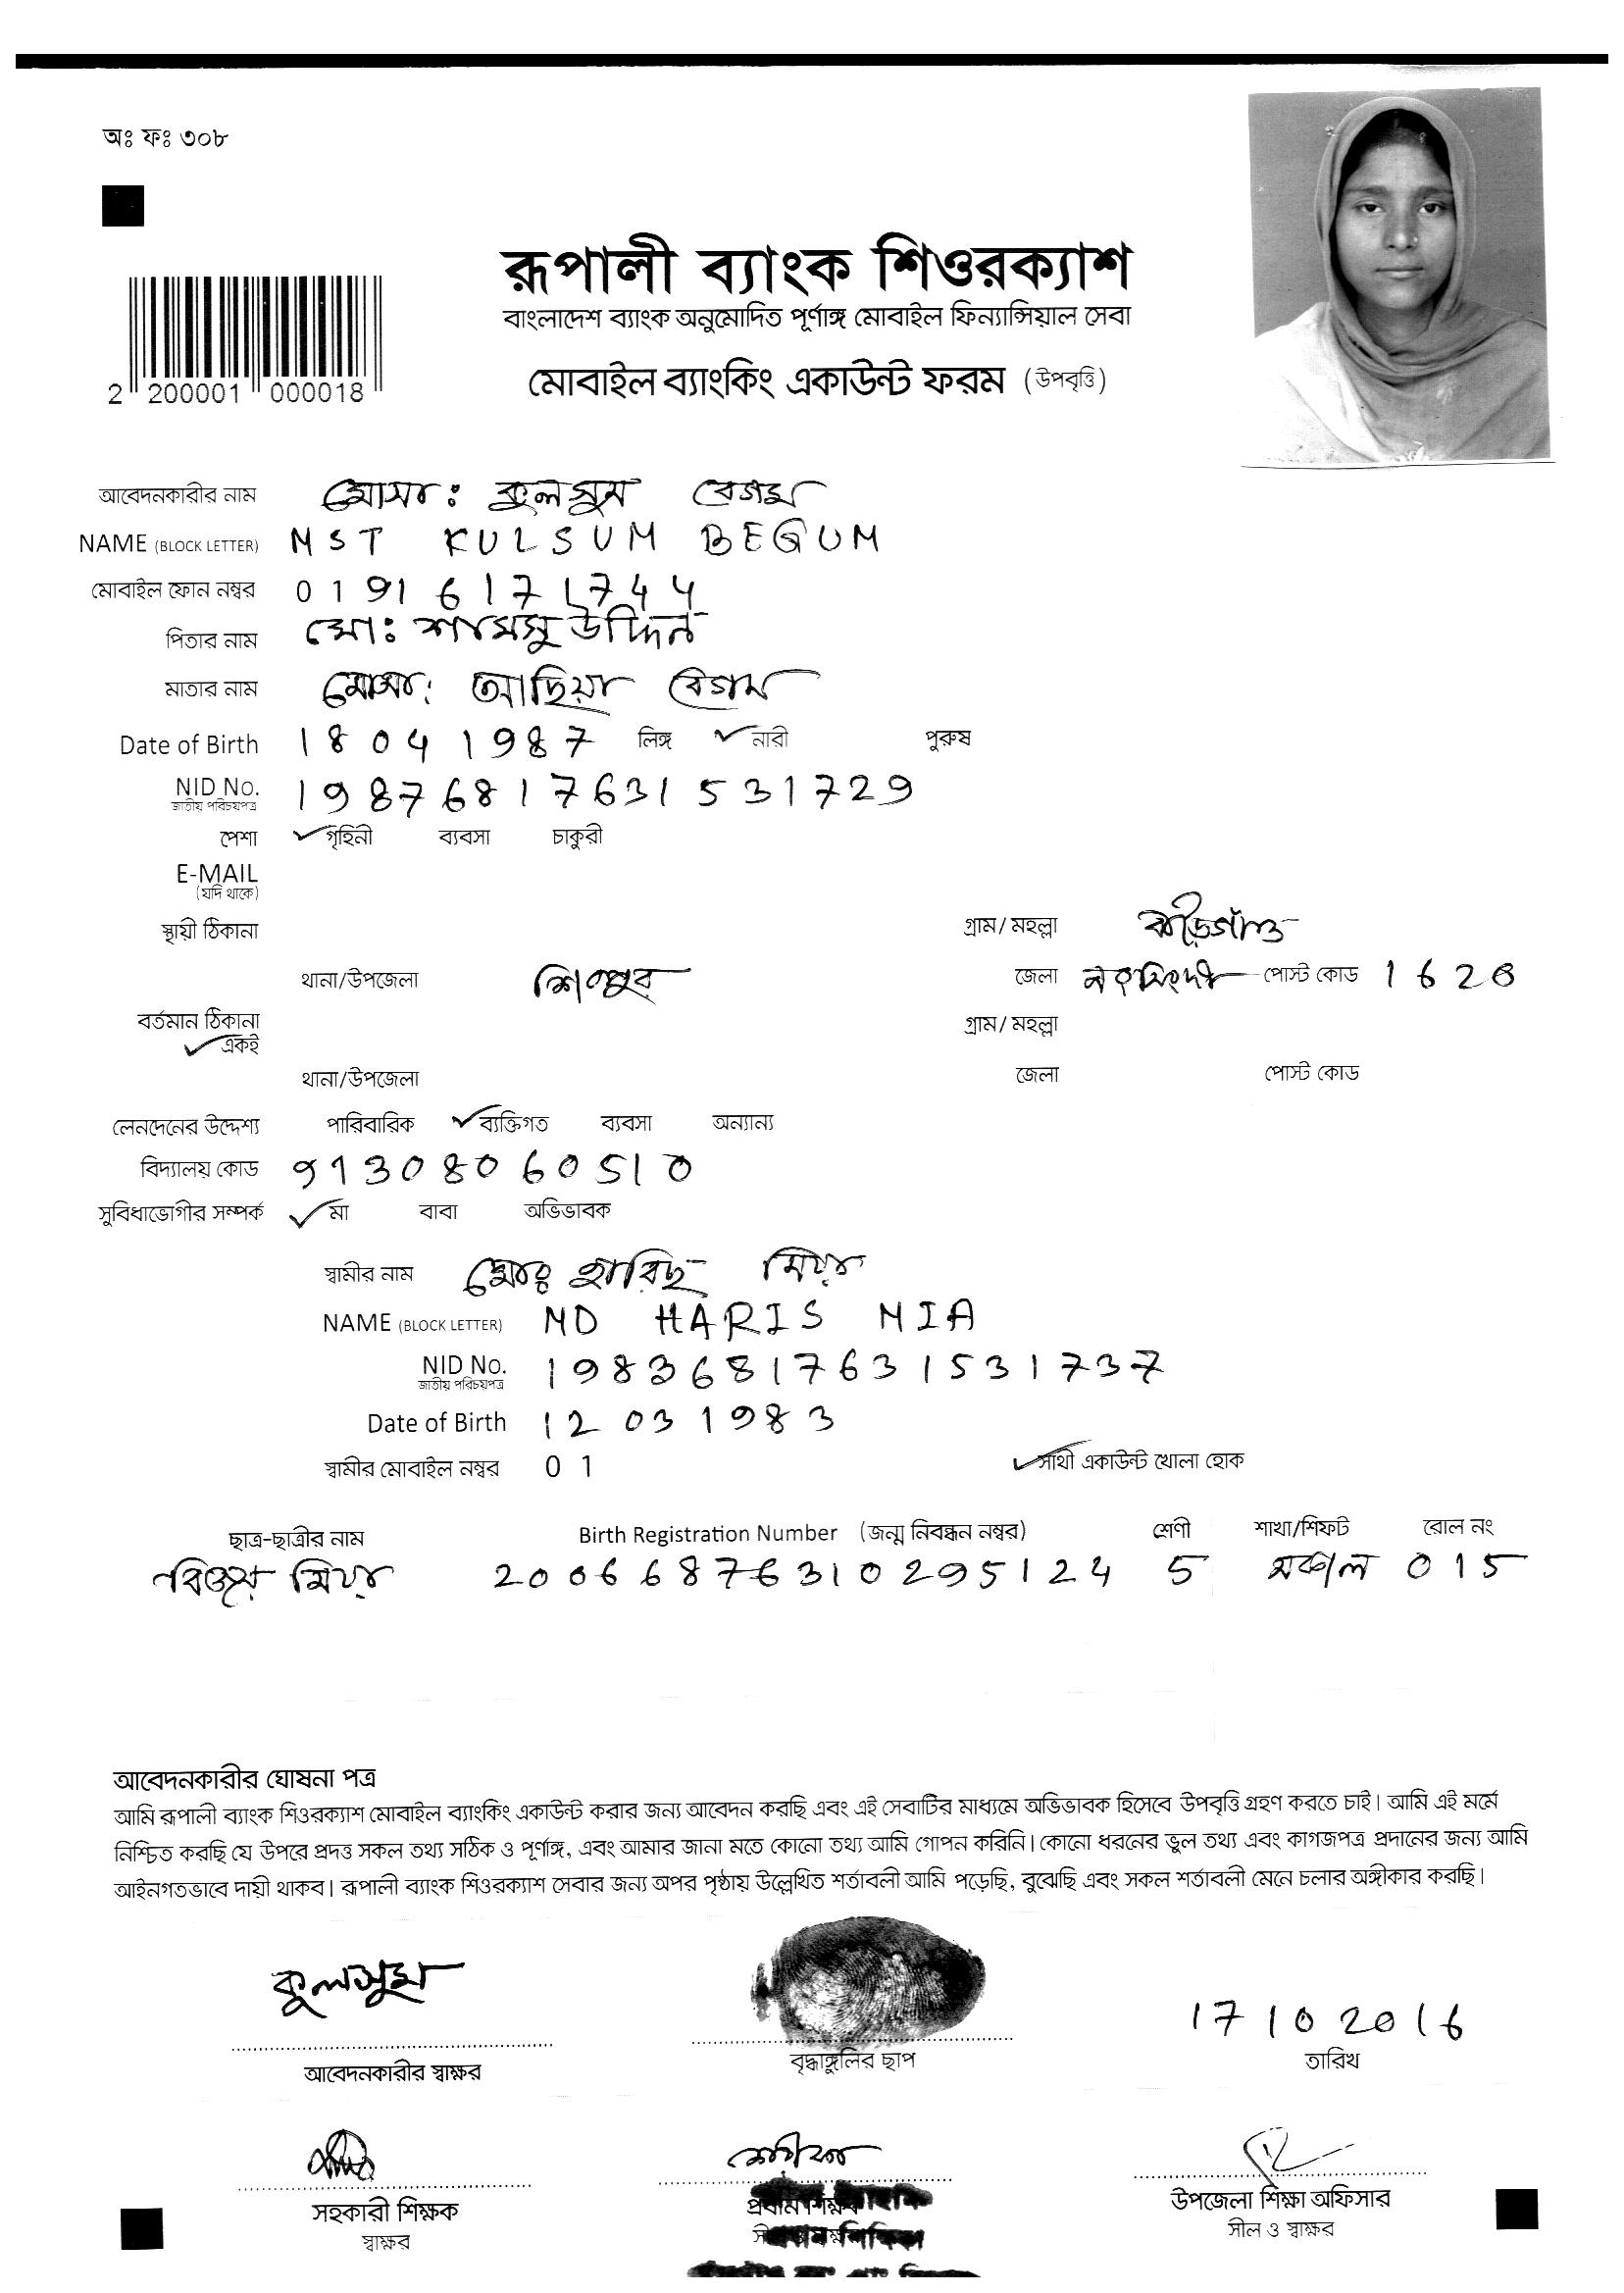 অঃ ফঃ ৩০৮
রূপালী ব্যাংক শিওরক্যাশ
বাংলাদেশ ব্যাংক অনুমোদিত পূর্ণাঙ্গ মোবাইল ফিন্যান্সিয়াল সেবা
মোবাইল ব্যাংকিং একাউন্ট ফরম (উপবৃত্তি)
2 200001 000018
আবেদনকারীর নাম মোসা: কুলসুম বেগম
NAME (BLOCK LETTER) MST KULSUM BEGUM
মোবাইল ফোন নম্বর 01916171744
পিতার নাম মো: শামসু উদ্দিন
মাতার নাম মোসা: আছিয়া বেগম
Date of Birth 18 04 1987 লিঙ্গ নারী পুরুষ
NID No. 19876817631531729
জাতীয় পরিচয়পত্র
পেশা গৃহিনী ব্যবসা চাকুরী
E-MAIL
(যদি থাকে)
স্থায়ী ঠিকানা গ্রাম/ মহল্লা
থানা/উপজেলা শিবপুর জেলা নরসিংদী পোস্ট কোড 1620
বর্তমান ঠিকানা গ্রাম/ মহল্লা
একই
থানা/উপজেলা জেলা পোস্ট কোড
লেনদেনের উদ্দেশ্য পারিবারিক ব্যক্তিগত ব্যবসা অন্যান্য
বিদ্যালয় কোড 91308060510
সুবিধাভোগীর সম্পর্ক মা বাবা অভিভাবক
স্বামীর নাম মোঃ হারিছ মিয়া
NAME (BLOCK LETTER) MD HARIS MIA
NID No. 19836817631531737
জাতীয় পরিচয়পত্র
Date of Birth 12 03 1983
স্বামীর মোবাইল নম্বর 01 সাথী একাউন্ট খোলা হোক
ছাত্র-ছাত্রীর নাম Birth Registration Number (জন্ম নিবন্ধন নম্বর) শ্রেণী শাখা/শিফট রোল নং
মিয়া 20066876310295124 5 সকাল 015
আবেদনকারীর ঘোষনা পত্র
আমি রূপালী ব্যাংক শিওরক্যাশ মোবাইল ব্যাংকিং একাউন্ট করার জন্য আবেদন করছি এবং এই সেবাটির মাধ্যমে অভিভাবক হিসেবে উপবৃত্তি গ্রহণ করতে চাই। আমি এই মর্মে
নিশ্চিত করছি যে উপরে প্রদত্ত সকল তথ্য সঠিক ও পূর্ণাঙ্গ, এবং আমার জানা মতে কোনো তথ্য আমি গোপন করিনি। কোনো ধরনের ভুল তথ্য এবং কাগজপত্র প্রদানের জন্য আমি
আইনগতভাবে দায়ী থাকব। রূপালী ব্যাংক শিওরক্যাশ সেবার জন্য অপর পৃষ্ঠায় উল্লেখিত শর্তাবলী আমি পড়েছি, বুঝেছি এবং সকল শর্তাবলী মেনে চলার অঙ্গীকার করছি।
কুলসুম 17 10 2016
আবেদনকারীর স্বাক্ষর বৃদ্ধাঙ্গুলির ছাপ তারিখ
সহকারী শিক্ষক প্রধান শিক্ষক উপজেলা শিক্ষা অফিসার
স্বাক্ষর সীল ও স্বাক্ষর